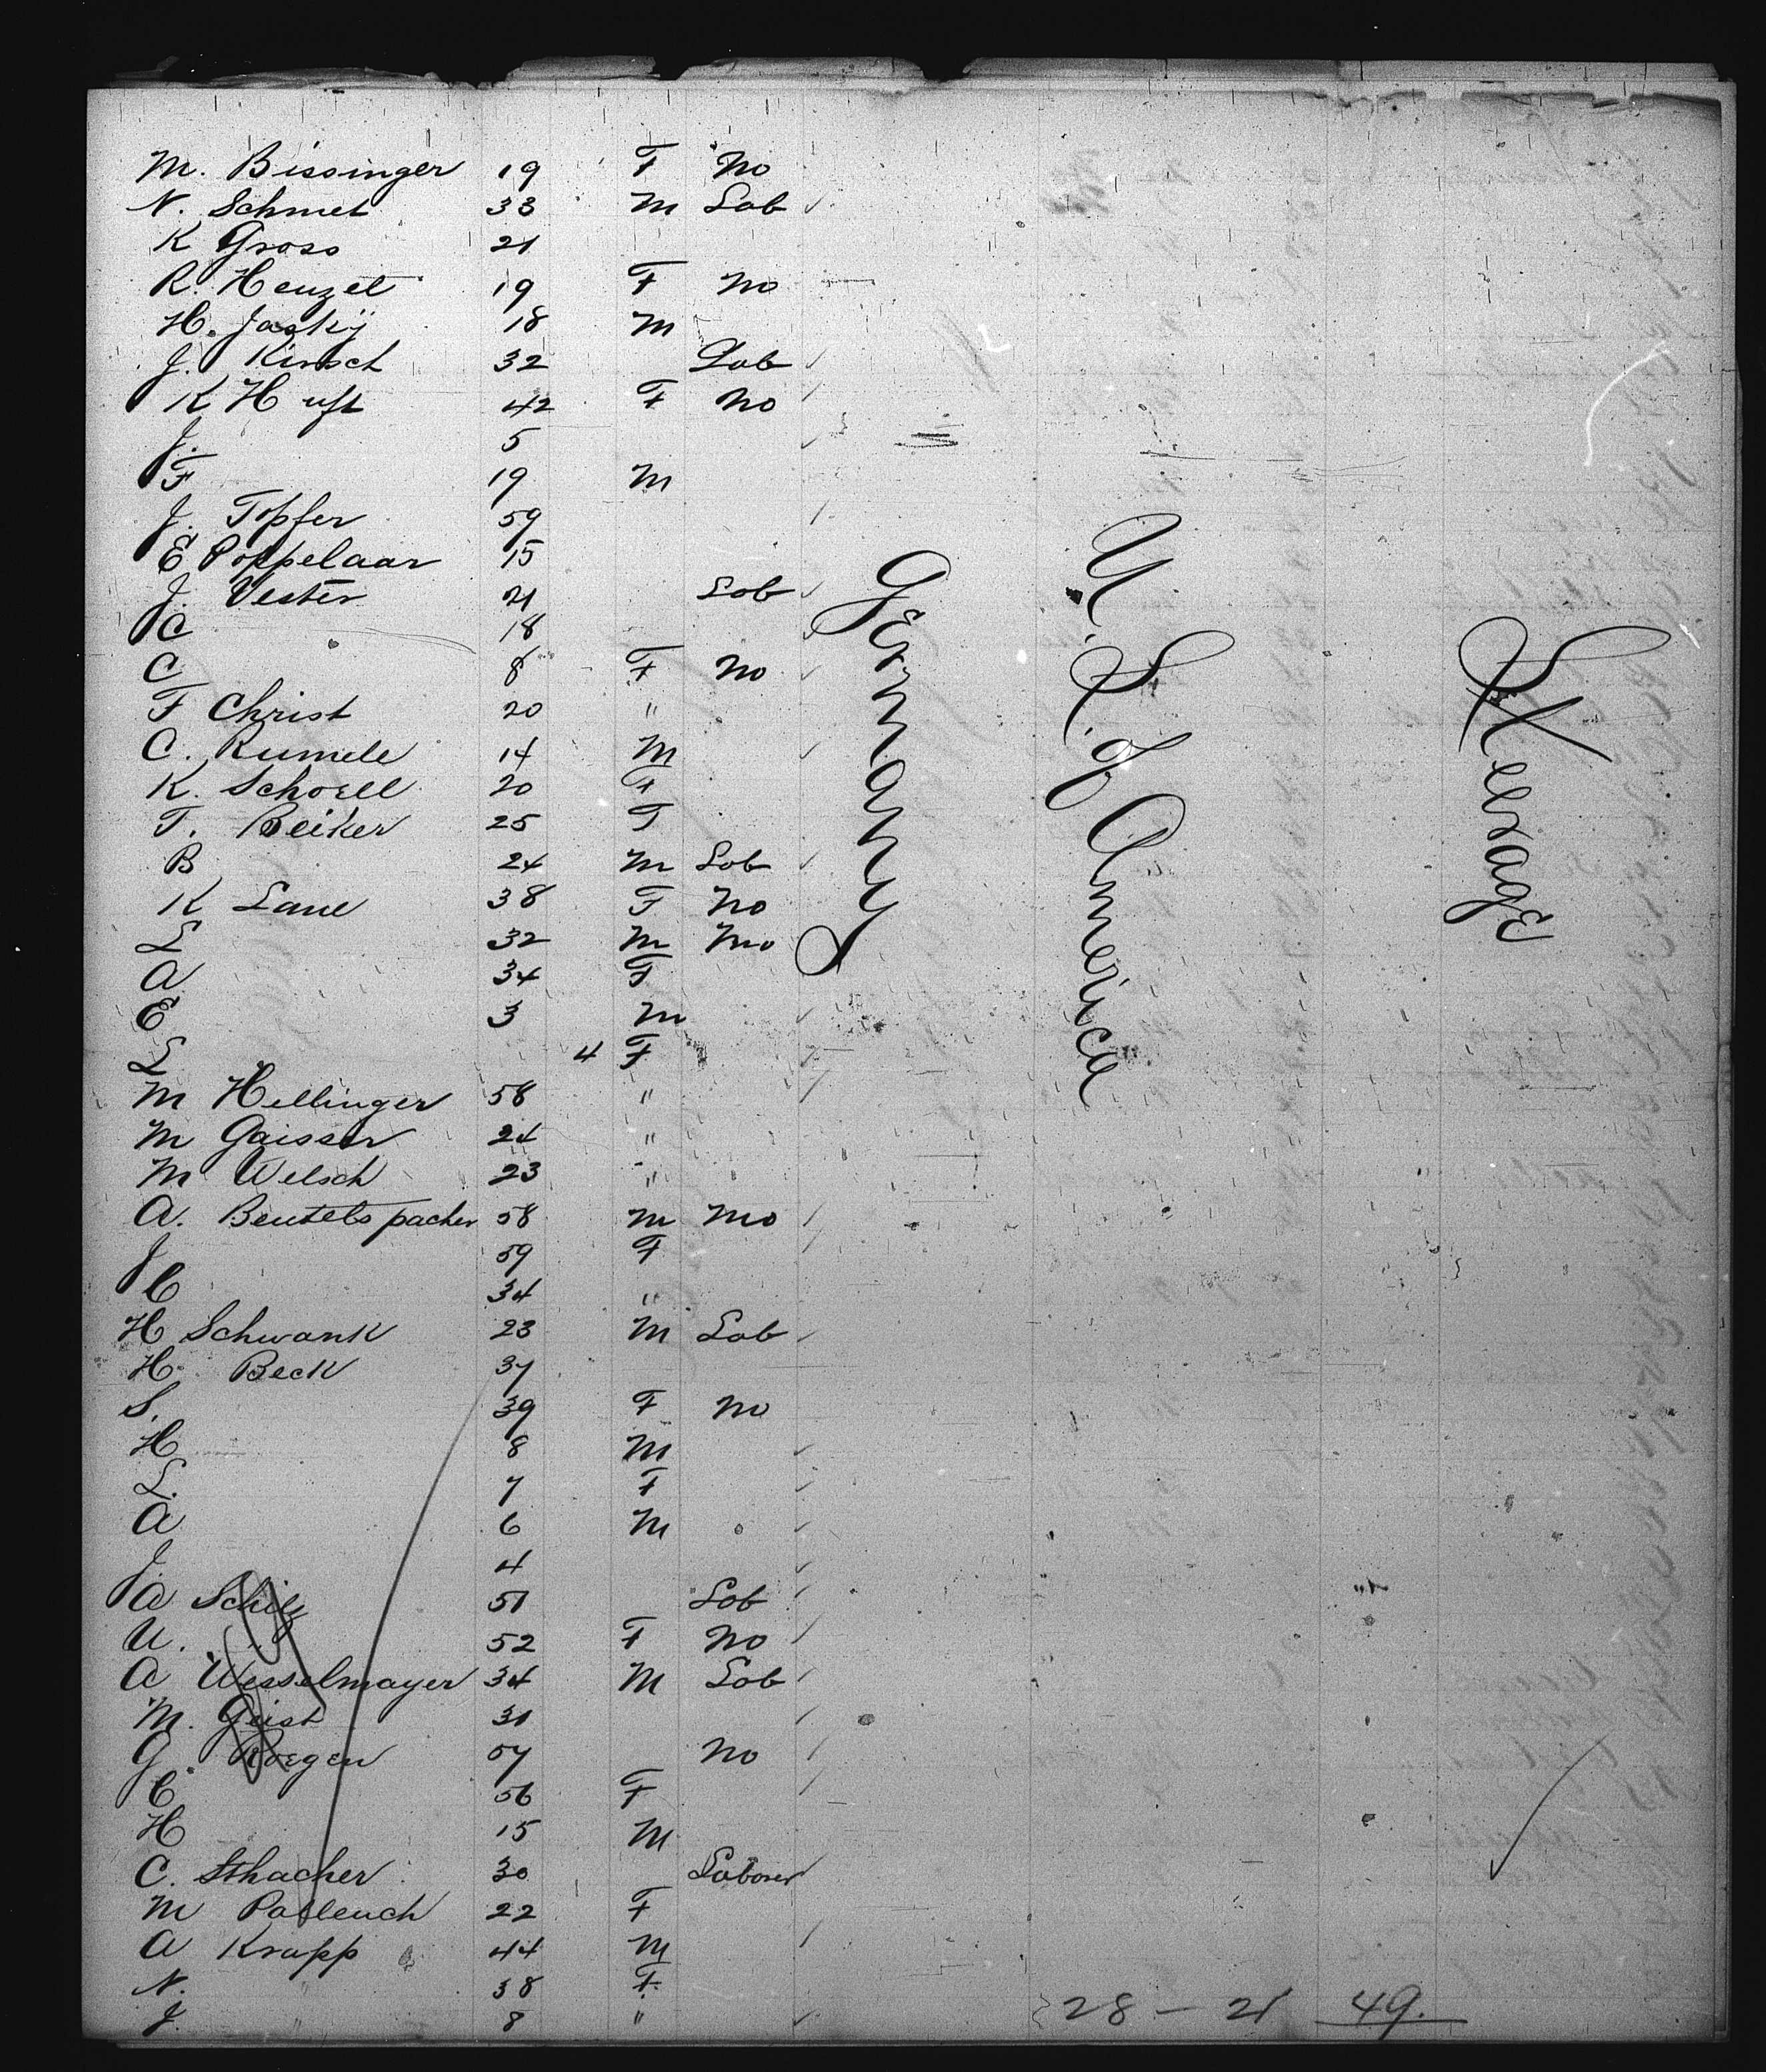 M. Bissinger 19 F No
N. Schmet 33 M Lab
K Gross 21
R. Henzel 19 F No
H. Jasky 18 M
J. Kirsch 32 Lab
K Huft 42 F No
J. 5
F 19 M
J. Topfer 59
E Poppelaar 15
J. Vester 21 Lob
C 18
C 8 F No
F Christ 20 "
C. Rumele 14 M
K. Schoell 20 F
T. Beiker 25 F
B 24 M Lob
K Lane 38 F No
L 32 M Mo
A 34 F
E 3 M
L 4 F
M Hellinger 58 "
M Gaisser 24 "
M Welsch 23 "
A. Beutelspacher 58 M Mo
J 59 F
C 34 "
H Schwank 23 M Lab
H. Beck 37
S. 39 F No
H 8 M
L. 7 F
A 6 M
J 4
A Schilz 51 Lob
U. " 52 F No
A Wesselmayer 34 M Lob
M. Geist 31
G. Roegen 57 No
C 56 F
H 15 M
C. Sthacher 30 Laborer
M 22 F
A Krapp 44 M
N. " 38 F.
J. " 8 "
Germany
U. S. of America
Steerage
28 - 21 49.